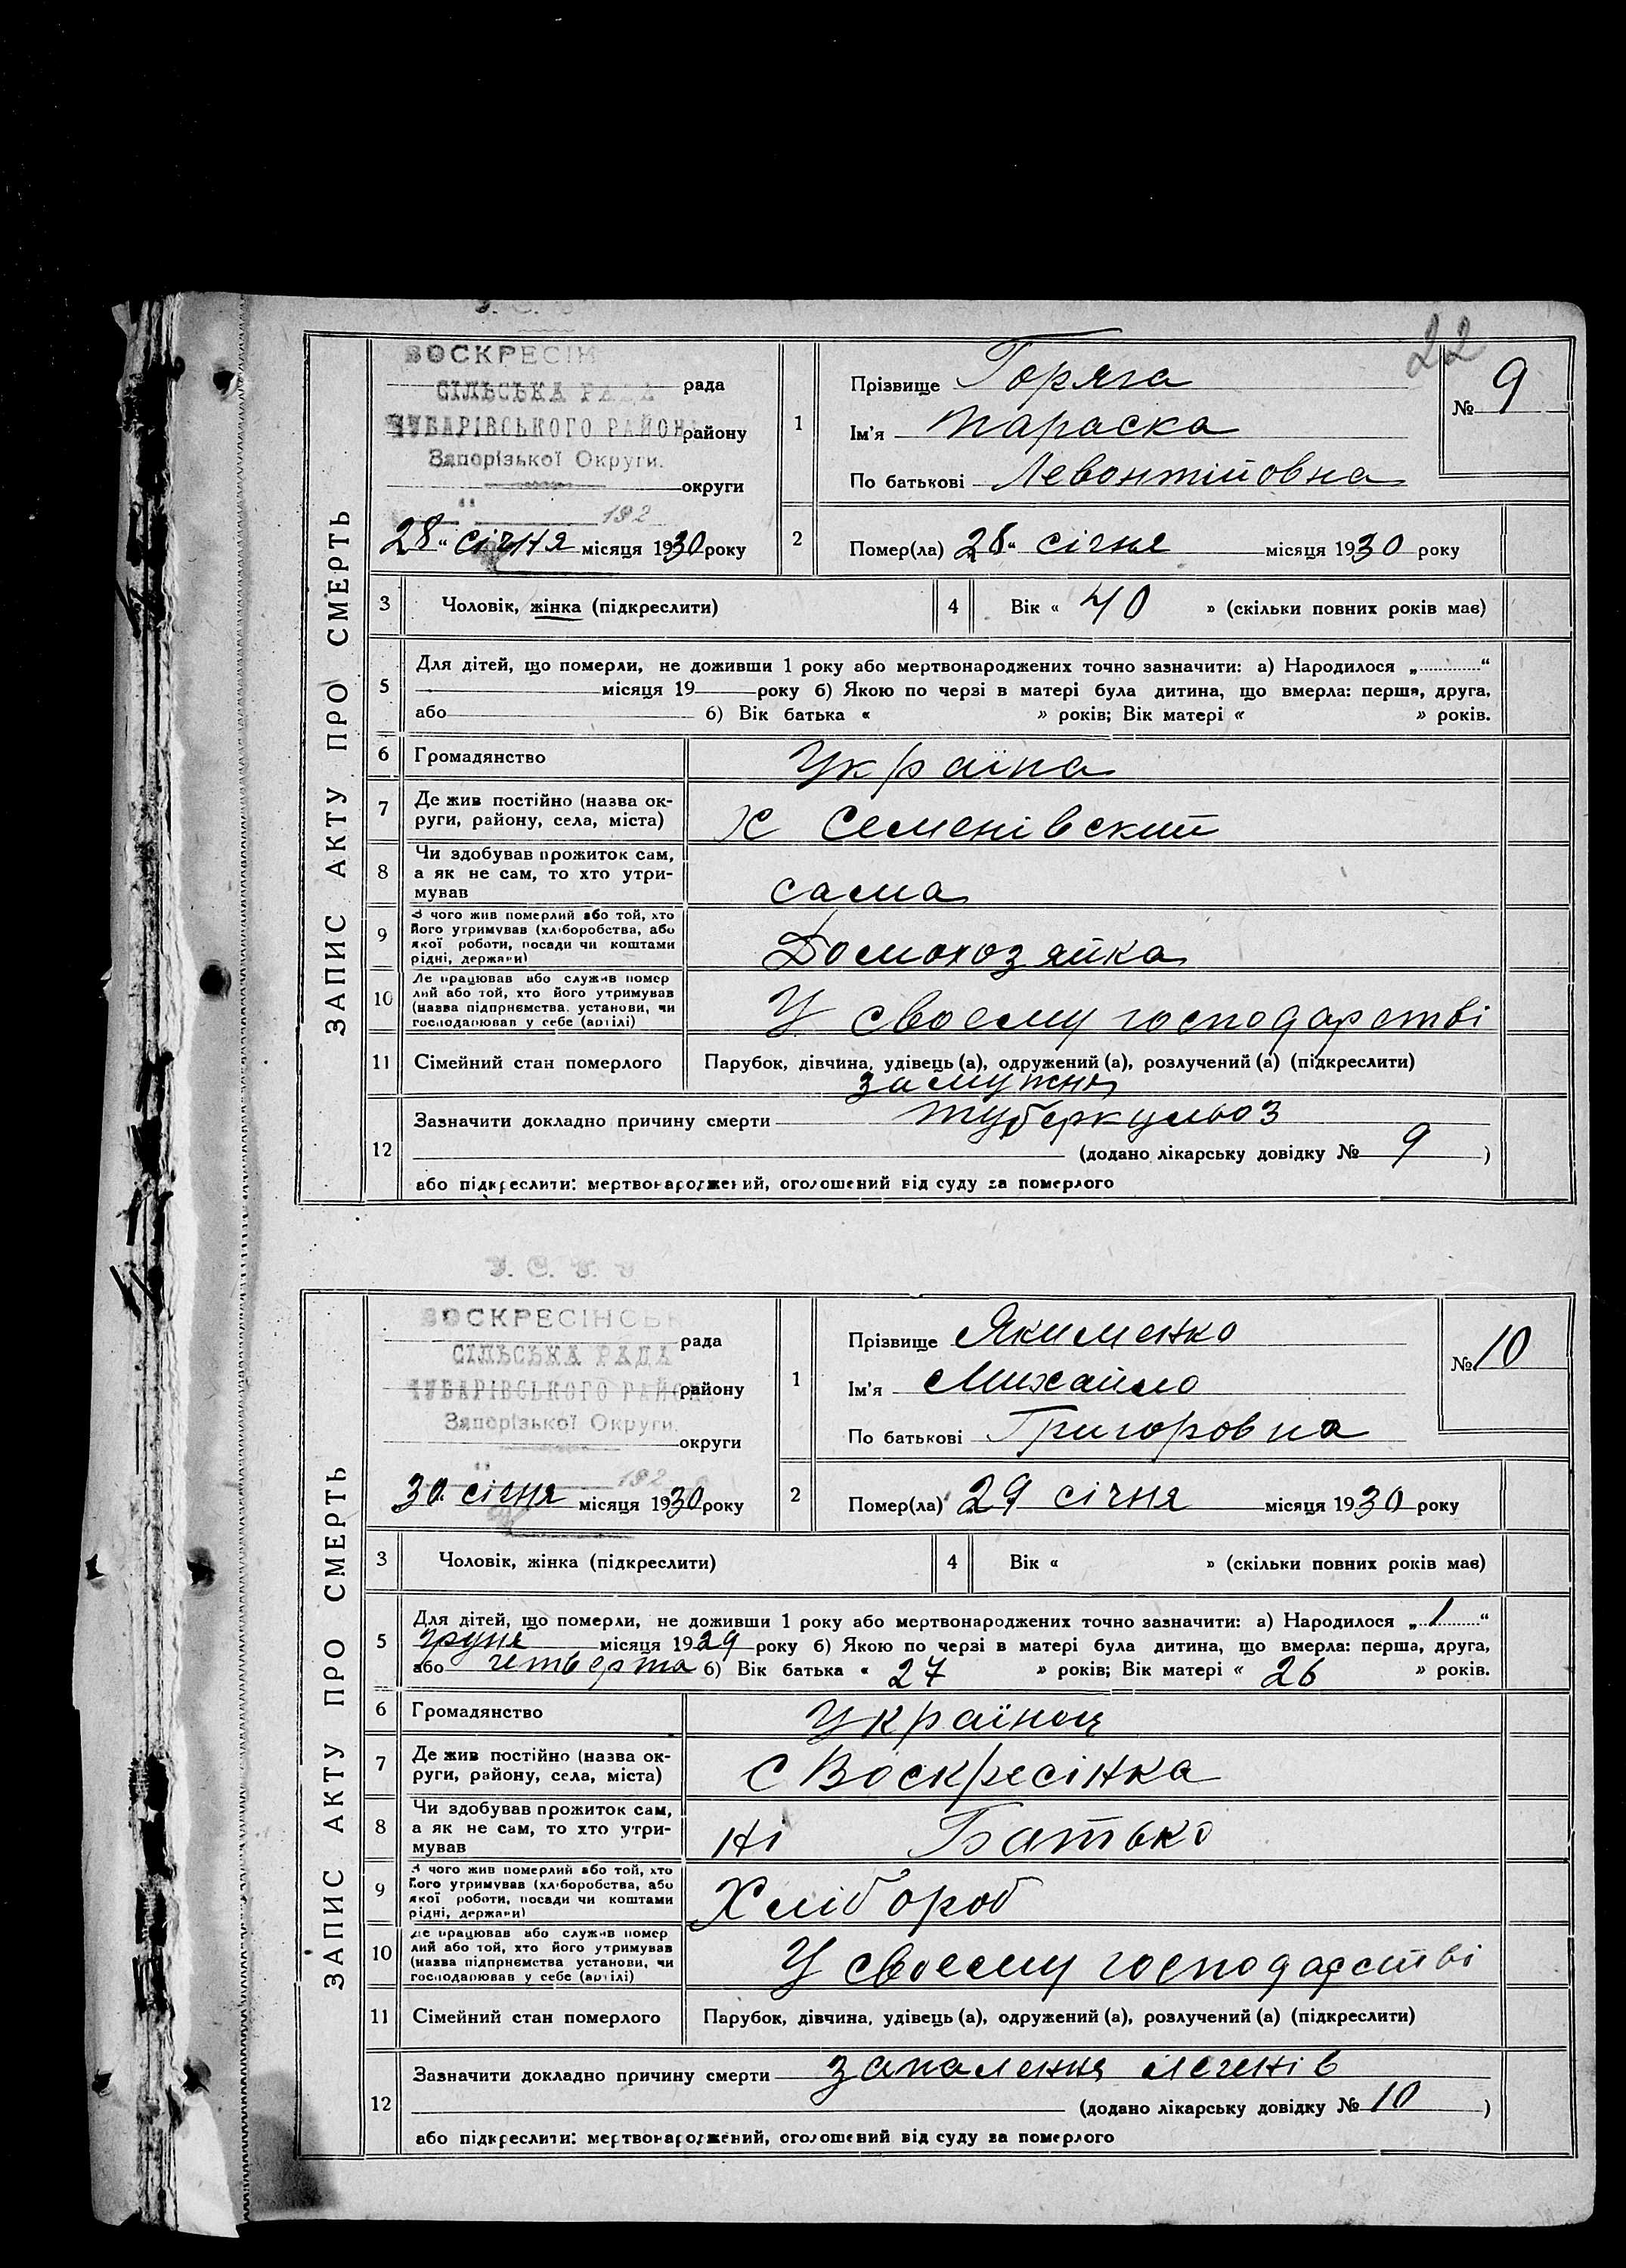 22
ЗАПИС АКТУ ПРО СМЕРТЬ
ВОСКРЕСІН
СІЛЬСЬКА РАДА рада
ЧУБАРІВСЬКОГО РАЙОН району
Запорізької Округи.
округи
192
28 „ січня місяця 1930 року
1
Прізвище Горяга
Ім'я Параска
По батькові Левонтійовна
№ 9
2
Помер(ла) 28 „ січня місяця 1930 року
3 Чоловік, жінка (підкреслити)
4 Вік « 40 » (скільки повних років має)
5 Для дітей, що померли, не доживши 1 року або мертвонароджених точно зазначити: а) Народилося „ “
місяця 19 року б) Якою по черзі в матері була дитина, що вмерла: перша, друга,
або б) Вік батька « » років; Вік матері « » років.
6 Громадянство Україна
7 Де жив постійно (назва ок-
руги, району, села, міста) Х Семенівский
8 Чи здобував прожиток сам,
а як не сам, то хто утри-
мував сама
9 З чого жив померлий або той, хто
його утримував (хліборобства, або
якої роботи, посади чи коштами
рідні, держави) Домохозяйка
10 Де працював або служив помер
лий або той, хто його утримував
(назва підприємства, установи, чи
господарював у себе (артілі) У своему господарстві
11 Сімейний стан померлого Парубок, дівчина, удівець (а), одружений (а), розлучений (а) (підкреслити)
замужня
12 Зазначити докладно причину смерти туберкульоз
(додано лікарську довідку № 9 )
або підкреслити: мертвонароджений, оголошений від суду за померлого
У. С. Р. Р.
ЗАПИС АКТУ ПРО СМЕРТЬ
ВОСКРЕСІНСЬК
рада
СІЛЬСЬКА РАДА
ЧУБАРІВСЬКОГО РАЙОН району
Запорізької Округи.
округи
192
30 січня місяця 1930 року
1
Прізвище Якименко
Ім'я Михайло
По батькові Григоровна
№ 10
2
Помер(ла) 29 січня місяця 1930 року
3 Чоловік, жінка (підкреслити)
4 Вік « » (скільки повних років має)
5 Для дітей, що померли, не доживши 1 року або мертвонароджених точно зазначити: а) Народилося „ 1 “
грудня місяця 1929 року б) Якою по черзі в матері була дитина, що вмерла: перша, друга,
або четверта б) Вік батька « 27 » років; Вік матері « 26 » років.
6 Громадянство Українец
7 Де жив постійно (назва ок-
руги, району, села, міста) С Воскресінка
8 Чи здобував прожиток сам,
а як не сам, то хто утри-
мував ні Батько
9 З чого жив померлий або той, хто
його утримував (хліборобства, або
якої роботи, посади чи коштами
рідні, держави) Хлібороб
10 Де працював або служив помер
лий або той, хто його утримував
(назва підприємства установи, чи
господарював у себе (артілі) У своему господарстві
11 Сімейний стан померлого Парубок, дівчина, удівець (а), одружений (а), розлучений (а) (підкреслити)
12 Зазначити докладно причину смерти запалення легенів
(додано лікарську довідку № 10 )
або підкреслити: мертвонароджений, оголошений від суду за померлого